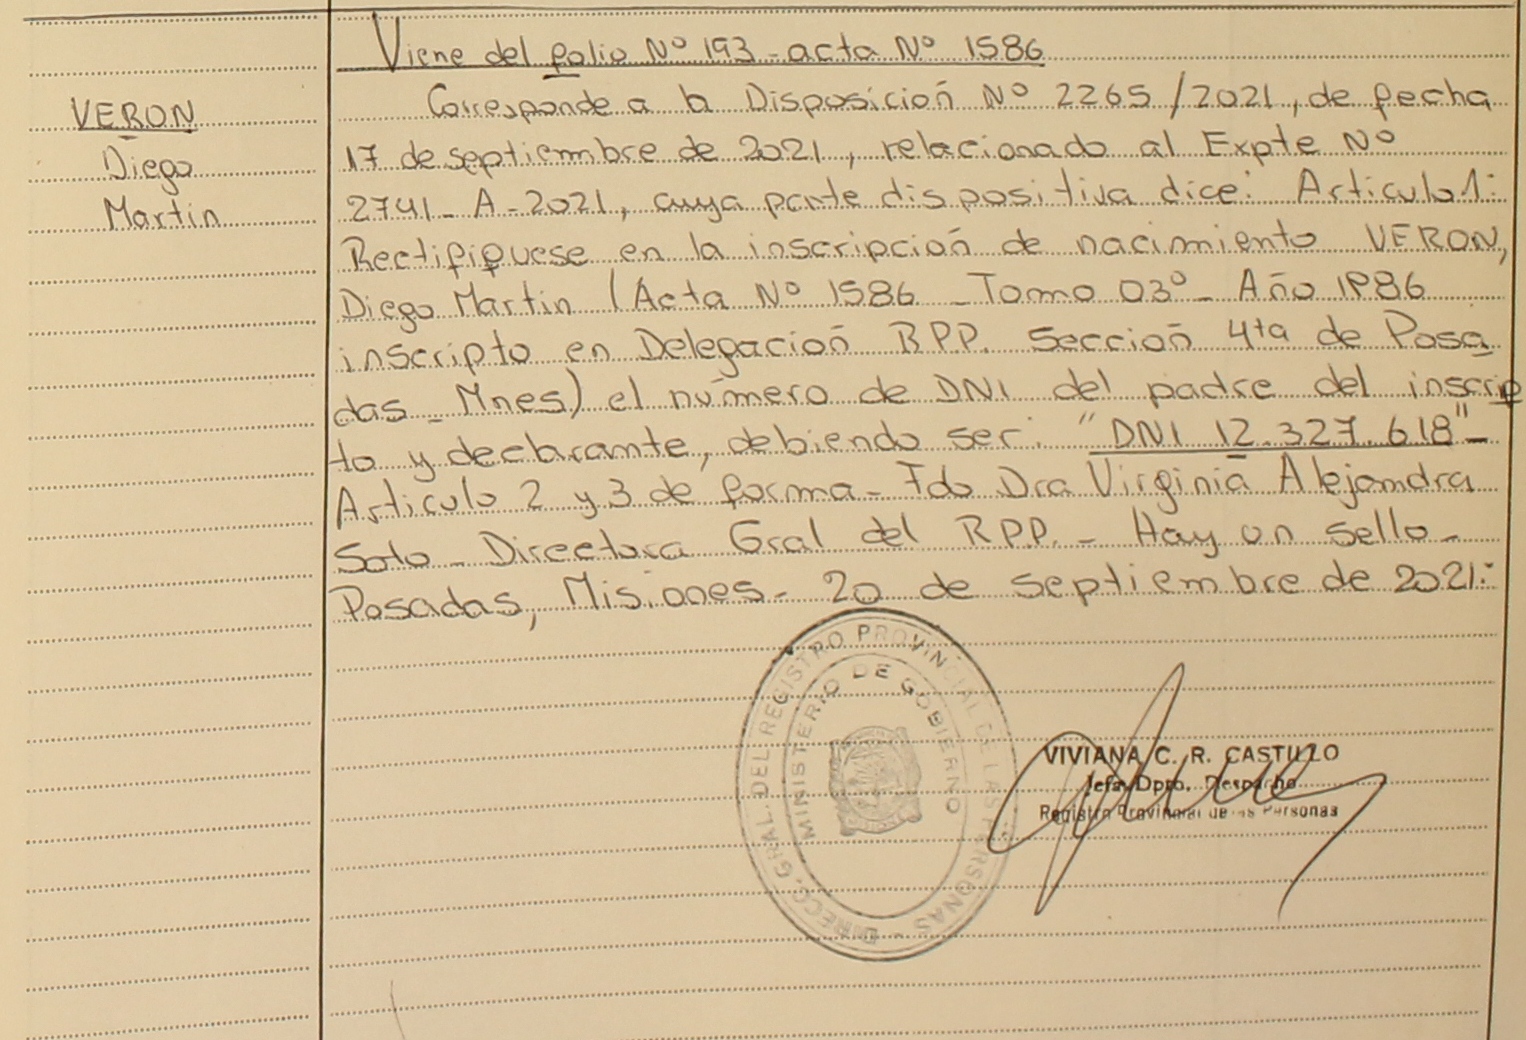 Viene del folio Nº 193 - acta Nº 1586
VERON
Diego
Martin
Corresponde a la Disposición Nº 2265/2021, de fecha
17 de septiembre de 2021, relacionado al Expte Nº
2741 - A - 2021, cuya parte dispositiva dice: Articulo 1:
Rectifiquese en la inscripción de nacimiento VERON,
Diego Martin (Acta Nº 1586 - Tomo 03º - Año 1986
inscripto en Delegación RPP. Sección 4ta de Posa
das - Mnes) el número de DNI del padre del inscrip
to y declarante, debiendo ser: "DNI 12.327.618" -
Articulo 2 y 3 de forma - Fdo Dra Virginia Alejandra
Soto - Directora Gral del RPP. - Hay un sello -
Posadas, Misiones - 20 de septiembre de 2021.-
DIRECC. GRAL. DEL REGISTRO PROVINCIAL DE LAS PERSONAS -
MINISTERIO DE GOBIERNO
VIVIANA C. R. CASTILLO
Jefa Dpto. Despacho
Registro Provincial de las Personas